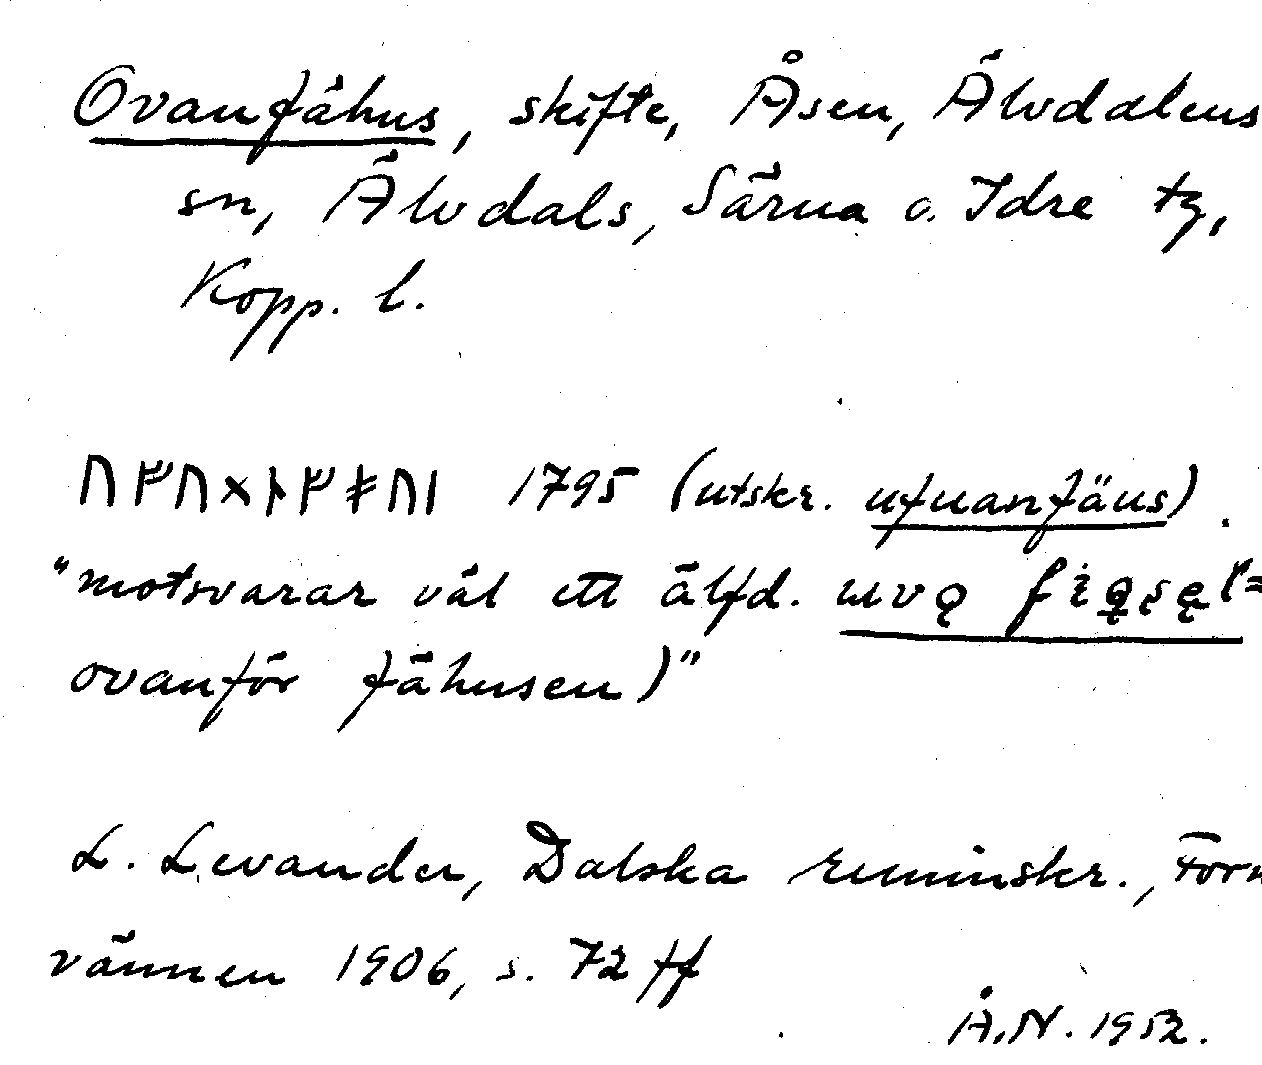 Ovanfähus, skifte, Åsen, Älvdalens
sn, Älvdals, Särna o. Idre tg,
Kopp. l.
ᚢᚠᚢᚷᚿᚠᚯᚢᛁ 1795 (utskr. ufuanfäus).
"motsvarar väl ett älfd. uvǫ
ovanför fähusen)"
L. Levander, Dalska runinskr., Forn
vännen 1906, s. 72 ff
Å.N. 1952.